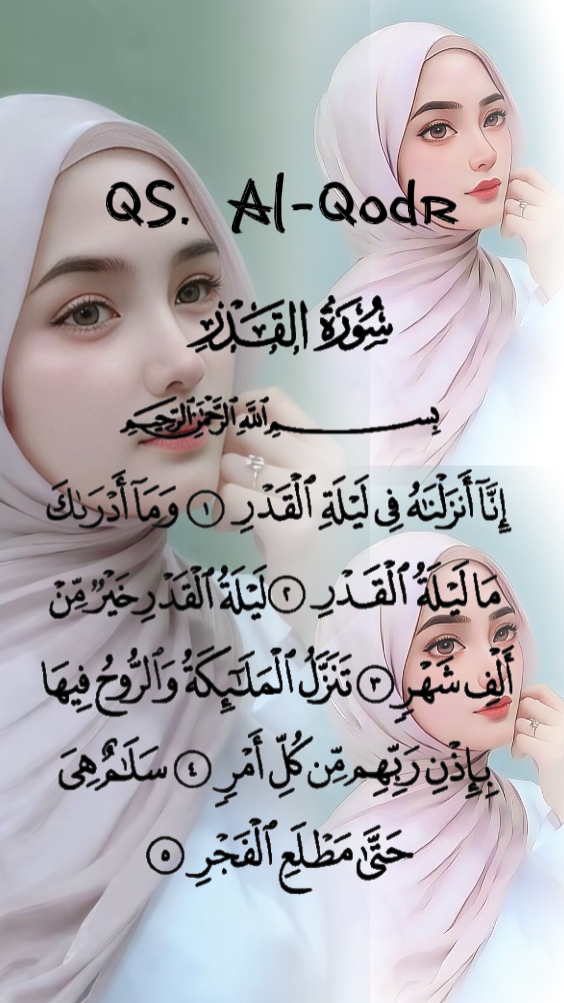 QS. Al-Qodr
سُوْرَةُ القَدْرِ
بِســـــمِ ٱللَّهِ ٱلرَّحْمَٰنِ ٱلرَّحِيمِ
إِنَّآ أَنزَلْنَٰهُ فِى لَيْلَةِ ٱلْقَدْرِ ١ وَمَآ أَدْرَىٰكَ
مَا لَيْلَةُ ٱلْقَدْرِ ٢ لَيْلَةُ ٱلْقَدْرِ خَيْرٌ مِّنْ
أَلْفِ شَهْرٍ ٣ تَنَزَّلُ ٱلْمَلَٰٓئِكَةُ وَٱلرُّوحُ فِيهَا
بِإِذْنِ رَبِّهِم مِّن كُلِّ أَمْرٍ ٤ سَلَٰمٌ هِىَ
حَتَّىٰ مَطْلَعِ ٱلْفَجْرِ ٥